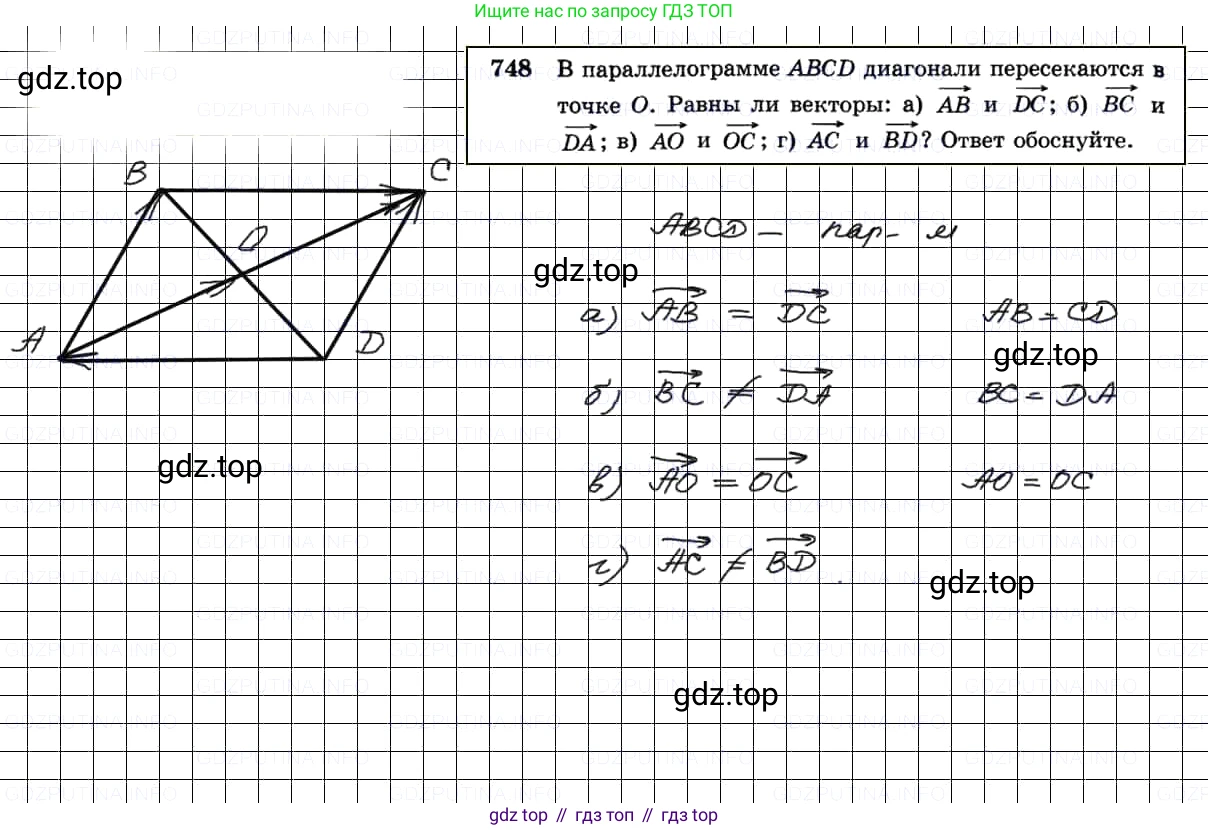 Ищите нас по запросу ГДЗ ТОП
gdz.top
748 В параллелограмме ABCD диагонали пересекаются в
точке O. Равны ли векторы: а) AB и DC; б) BC и
DA; в) AO и OC; г) AC и BD? Ответ обоснуйте.
B
C
O
A
D
ABCD – пар-м
gdz.top
а) AB = DC AB = CD
gdz.top
б) BC ≠ DA BC = DA
gdz.top
в) AO = OC AO = OC
г) AC ≠ BD.
gdz.top
gdz.top
gdz top // гдз топ // гдз top